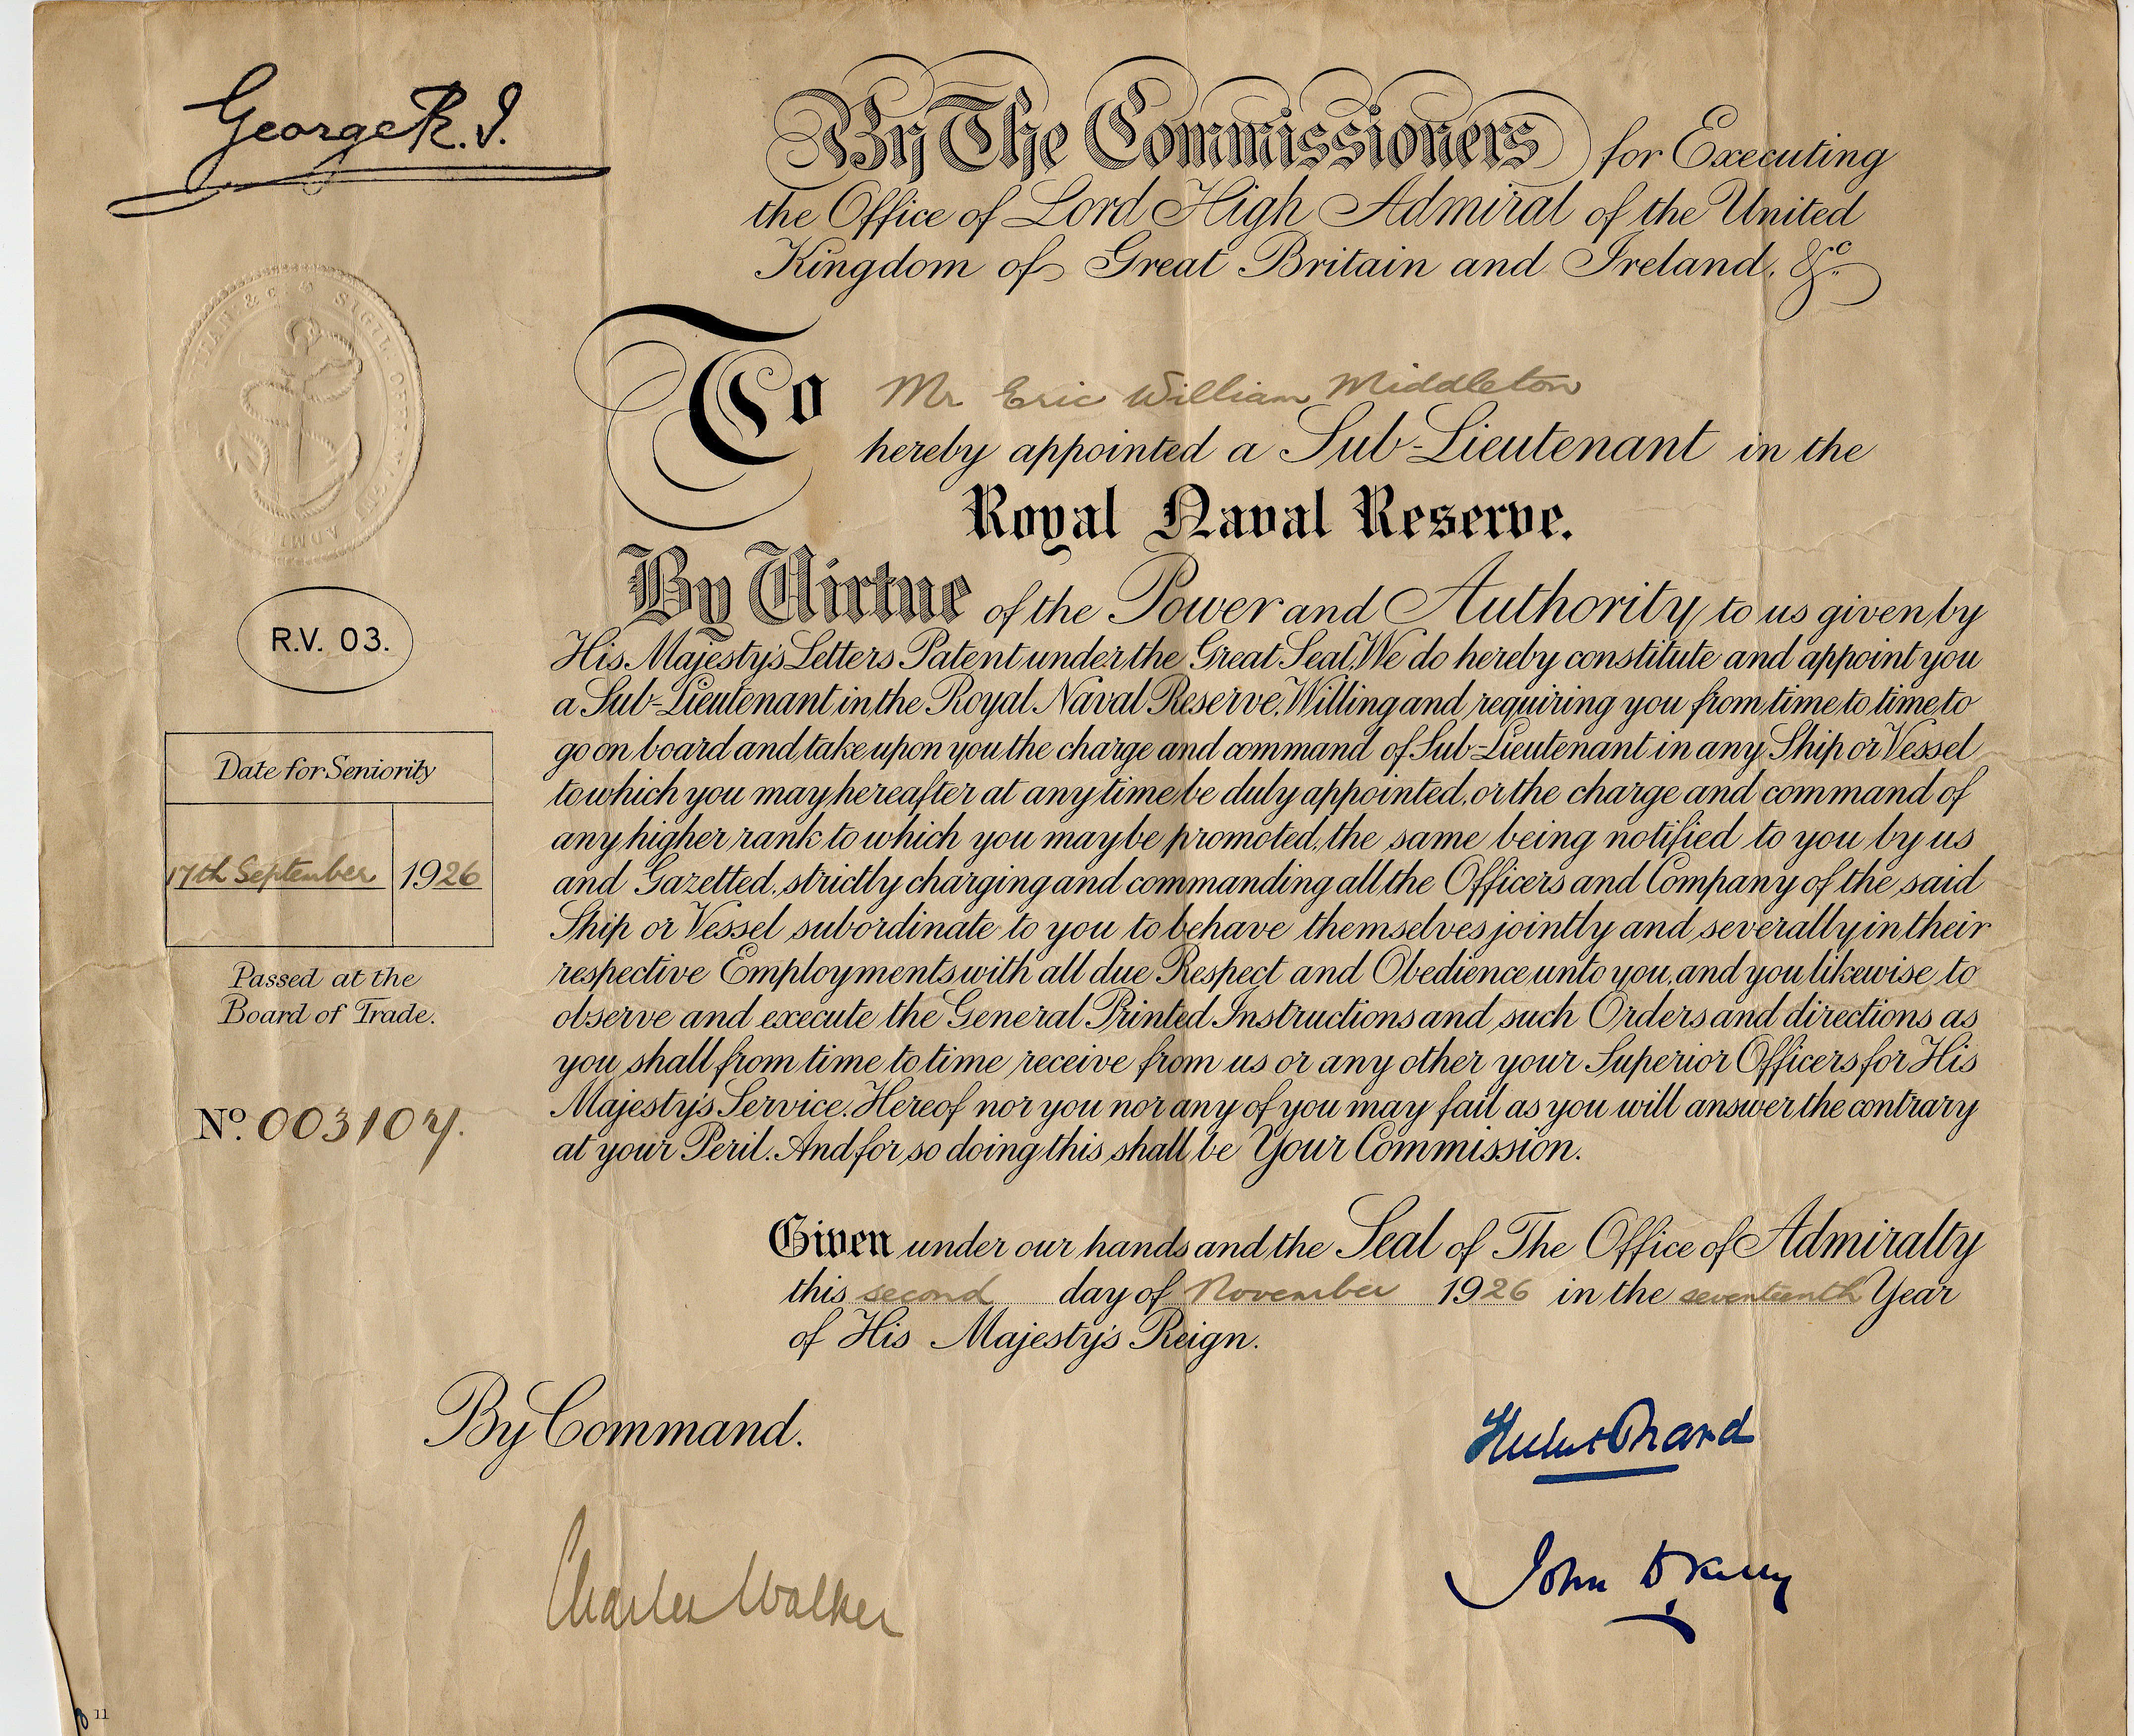 George R.I.
By The Commissioners for Executing
the Office of Lord High Admiral of the United
Kingdom of Great Britain and Ireland. &c.
To Mr Eric William Middleton
hereby appointed a Sub-Lieutenant in the
Royal Naval Reserve.
By Virtue of the Power and Authority to us given by
His Majesty's Letters Patent under the Great Seal, We do hereby constitute and appoint you
a Sub-Lieutenant in the Royal Naval Reserve, Willing and requiring you from time to time to
go on board and take upon you the charge and command of Sub-Lieutenant in any Ship or Vessel
to which you may hereafter at any time be duly appointed, or the charge and command of
any higher rank to which you may be promoted, the same being notified to you by us
and Gazetted, strictly charging and commanding all the Officers and Company of the said
Ship or Vessel subordinate to you to behave themselves jointly and severally in their
respective Employments with all due Respect and Obedience unto you, and you likewise to
observe and execute the General Printed Instructions and such Orders and directions as
you shall from time to time receive from us or any other your Superior Officers for His
Majesty's Service. Hereof nor you nor any of you may fail as you will answer the contrary
at your Peril. And for so doing this shall be Your Commission.
Given under our hands and the Seal of The Office of Admiralty
this second day of November 1926 in the seventeenth Year
of His Majesty's Reign.
By Command.
Charles Walker
John D Kelly
R.V. 03.
Date for Seniority
17th September 1926
Passed at the
Board of Trade.
No. 003104.
11